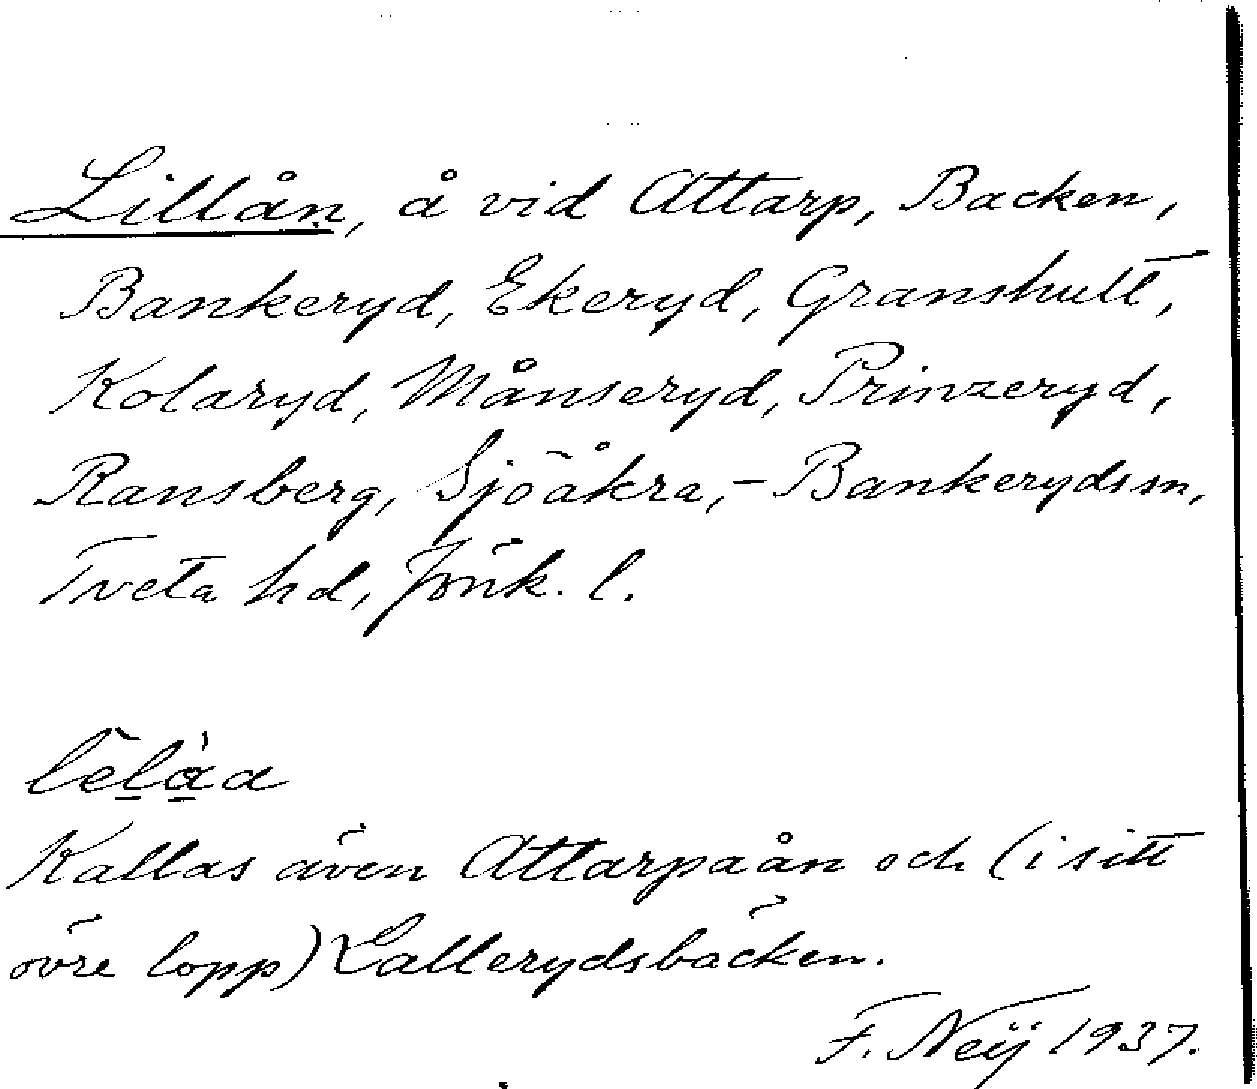 Lillån, å vid Attarp, Backen,
Bankeryd, Ekeryd, Granshult,
Kolaryd, Månseryd, Prinzeryd,
Ransberg, Sjöåkra, - Bankeryds sn,
Tveta hd, Jönk. l.
Kallas även Attarpaån och (i sitt
övre lopp) Lallerydsbäcken.
F. Neij 1937.